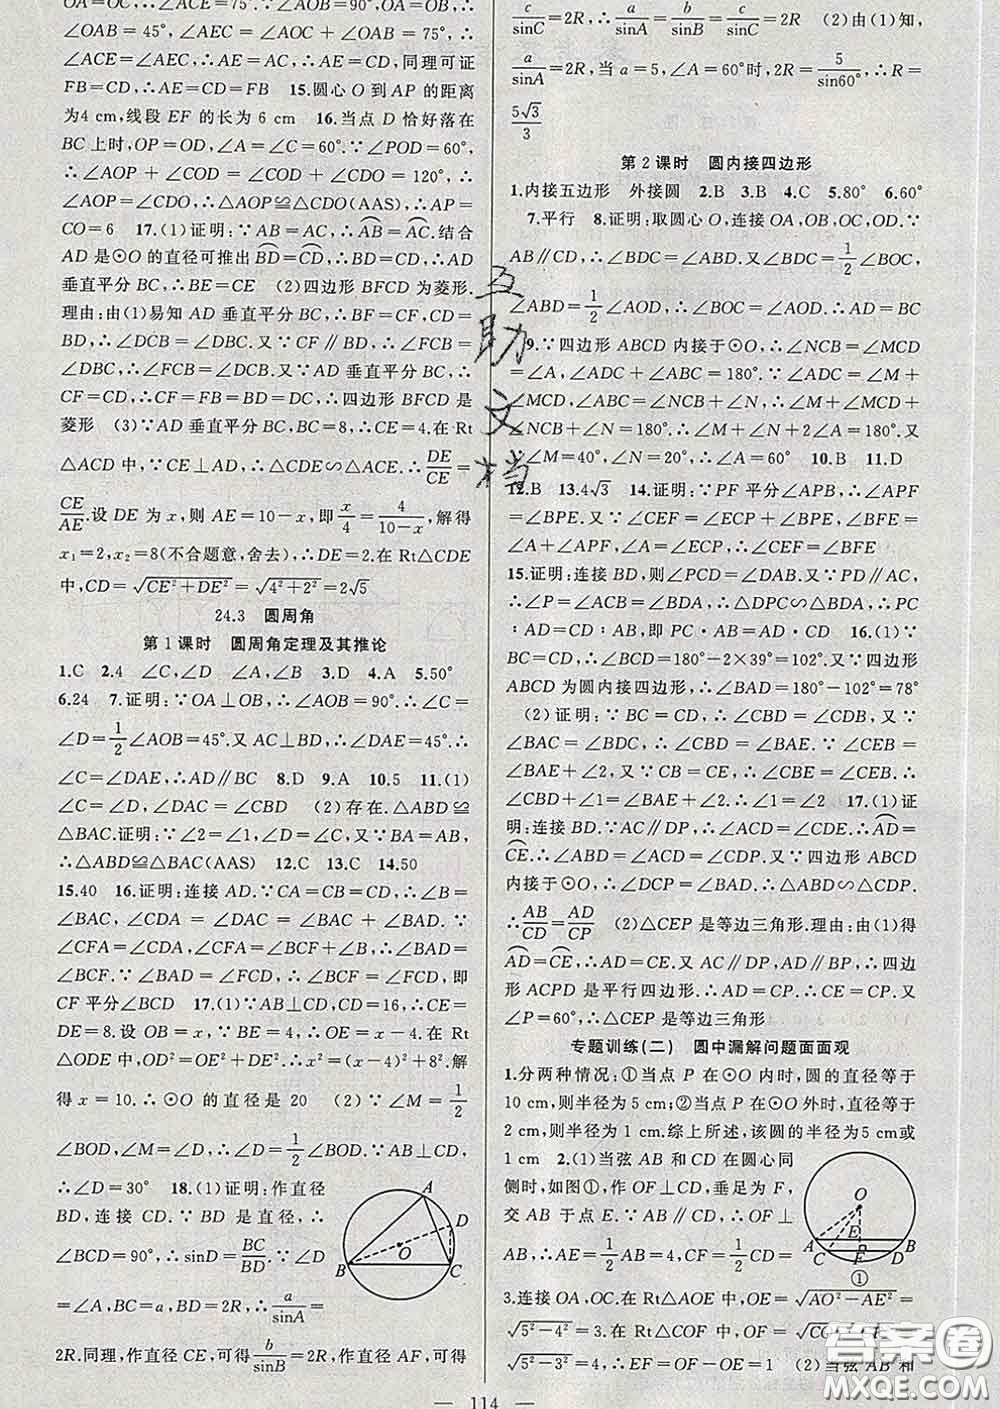 OA=OC,∴∠ACE=75°.∵AB=90°,OA=OB,∴
∠OAB=45°,∠AEC=∠AOC+∠OAB=75°,∴
∠ACE=∠AEC,∴AE=AC,∴AE=CD,同理可证
FB=CD,∴AE=CD=FB 15.圆心O到AP的距离
为4 cm,线段EF的长为6 cm 16.当点D恰好落在
BC上时,OP=OD,∠A=∠C.∵∠POD=60°,∴
∠AOP+∠APO=∠AOP+∠COD=120°,∴
∠APO=∠COD,∴△AOP≌△CDO(AAS),∴AP=
CO=6 17.(1)证明:∵AB=AC,∴AB=AC.结合
AD是⊙O的直径可推出BD=CD,∴BD=CD,∴AD
垂直平分BC,∴BE=CE (2)四边形BFCD为菱形.
理由:由(1)易知AD垂直平分BC,∴BF=CF,CD=
BD,∴∠DCB=∠DBC.又∵CF∥BD,∴∠FCB=
∠DBC,∴∠FCB=∠DCB.又∵AD垂直平分BC,∴
CF=CD,∴CF=BF=BD=CD,∴四边形BFCD是
菱形 (3)∵AD垂直平分BC,BC=8,∴CE=4.在Rt
△ACD中,∵CE⊥AD,∴△CDE∽△ACE.∴DE/CE=
CE/AE.设DE为x,则AE=10-x,即x/4=4/(10-x),解得
x₁=2,x₂=8(不合题意,舍去),∴DE=2.在Rt△CDE
中,CD=√(CE²+DE²)=√(4²+2²)=2√5
24.3 圆周角
第1课时 圆周角定理及其推论
1.C 2.4 ∠C,∠D ∠A,∠B 3.D 4.A 5.50°
6.24 7.证明:∵OA⊥OB,∴∠AOB=90°,∴∠C=
∠D=1/2∠AOB=45°.又AC⊥BD,∴∠DAE=45°.∴
∠C=∠DAE,∴AD∥BC 8.D 9.A 10.5 11.(1)
∠C=∠D,∠DAC=∠CBD (2)存在.△ABD≌
△BAC.证明:∵∠2=∠1,∠D=∠C,又∵BA=AB,
∴△ABD≌△BAC(AAS) 12.C 13.C 14.50
15.40 16.证明:连接AD.∵CA=CB=CD,∴∠B=
∠BAC,∠CDA=∠DAC=∠BAC+∠BAD.∵
∠CFA=∠CDA,∠CFA=∠BCF+∠B,∴∠BAD=
∠BCF.∵∠BAD=∠FCD,∴∠BCF=∠FCD,即
CF平分∠BCD 17.(1)∵AB⊥CD,CD=16,∴CE=
DE=8.设OB=x,∵BE=4,∴OE=x-4.在Rt
△ODE中,OD²=OE²+DE²,∴x²=(x-4)²+8².解
得x=10.∴⊙O的直径是20 (2)∵∠M=1/2
∠BOD,∠M=∠D,∴∠D=1/2∠BOD.∵AB⊥CD,
∴∠D=30° 18.(1)证明:作直径
BD,连接CD.∵BD是直径,∴
∠BCD=90°,∴sinD=BC/BD.∵∠D
=∠A,BC=a,BD=2R,∴a/sinA=
2R.同理,作直径CE,可得b/sinB=2R,作直径AF,可得
A
D
O
B
C
c/sinC=2R,∴a/sinA=b/sinB=c/sinC=2R (2)由(1)知,
a/sinA=2R,当a=5,∠A=60°时,2R=5/sin60°,∴R=
5√3/3
第2课时 圆内接四边形
1.内接五边形 外接圆 2.B 3.B 4.C 5.80° 6.60°
7.平行 8.证明:取圆心O,连接OA,OB,OC,OD.∵
AB∥CD,∴∠BDC=∠ABD.又∠BDC=1/2∠BOC,
∠ABD=1/2∠AOD,∴∠BOC=∠AOD.∴AD=BC
9.∵四边形ABCD内接于⊙O,∴∠NCB=∠MCD
=∠A,∠ADC+∠ABC=180°.∵∠ADC=∠M+
∠MCD,∠ABC=∠N+∠NCB,∴∠M+∠MCD+
∠NCB+∠N=180°.∴∠M+∠N+2∠A=180°.又
∵∠M=40°,∠N=20°,∴∠A=60° 10.B 11.D
12.B 13.4√3 14.证明:∵PF平分∠APB,∴∠APF
=∠BPE.又∵∠CEF=∠ECP+∠BPE,∠BFE=
∠A+∠APF,∠A=∠ECP,∴∠CEF=∠BFE
15.证明:连接BD,则∠PCD=∠DAB.又∵PD∥AC,
∴∠P=∠ACP=∠ADB,∴△PDC∽△DBA.∴PC
:AD=CD:AB,即PC·AB=AD·CD 16.(1)∵
BC=CD,∴∠BCD=180°-2×39°=102°.又∵四边形
ABCD为圆内接四边形,∴∠BAD=180°-102°=78°
(2)证明:∵BC=CD,∴∠CBD=∠CDB,又∵
∠BAC=∠BDC,∴∠CBD=∠BAE.∵∠CEB=
∠BAE+∠2,又∵CB=CE,∴∠CBE=∠CEB,∴
∠CBD+∠1=∠BAE+∠2.∴∠1=∠2 17.(1)证
明:连接BD.∵AC∥DP,∴∠ACD=∠CDE.∴AD=
CE.∴∠ABD=∠ACD=∠CDP.又∵四边形ABCD
内接于⊙O,∴∠DCP=∠BAD.∴△ABD∽△CDP.
∴AB/CD=AD/CP (2)△CEP是等边三角形.理由:由(1)得
AD=CE,∴AD=CE.又AC∥DP,AD∥BP,∴四边
形ACPD是平行四边形.∴AD=CP.∴CE=CP.又
∠P=60°,∴△CEP是等边三角形
专题训练(二) 圆中漏解问题面面观
1.分两种情况:①当点P在⊙O内时,圆的直径等于
10 cm,则半径为5 cm;②当点P在⊙O外时,直径等于
2 cm,则半径为1 cm.综上所述,该圆的半径为5 cm或
1 cm 2.(1)当弦AB和CD在圆心同
侧时,如图①,作OF⊥CD,垂足为F,
交AB于点E.∵AB∥CD,∴OF⊥
AB,∴AE=1/2AB=4,CF=1/2CD=
3.连接OA,OC.在Rt△AOE中,OE=√(AO²-AE²)=
√(5²-4²)=3.在Rt△COF中,OF=
√(5²-3²)=4,∴EF=OF-OE=1 (2)当弦AB和
O
A
E
B
C
F
D
①
互助文档
答案圈
MXQE.COM
— 114 —